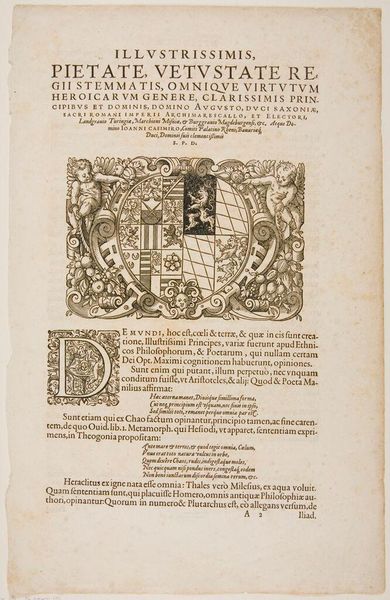 ILLVSTRISSIMIS,
PIETATE, VETVSTATE RE-
GII STEMMATIS, OMNIQVE VIRTVTVM
HEROICARVM GENERE, CLARISSIMIS PRIN-
CIPIBVS ET DOMINIS, DOMINO AVGVSTO, DVCI SAXONIÆ,
SACRI ROMANI IMPERII ARCHIMARESCALLO, ET ELECTORI,
Landgrauio Turingiæ, Marchioni Misniæ, & Burggrauio Magdeburgensi, &c. Atque Do-
mino IOANNI CASIMIRO, Comiti Palatino Rheni, Bauariæq́,
Duci, Dominis suis clementissimis
S. P. D.
DE MVNDI, hoc est, cœli & terræ, & quæ in eis sunt crea-
tione, Illustrissimi Principes, variæ fuerunt apud Ethni-
cos Philosophorum, & Poetarum, qui nullam certam
Dei Opt. Maximi cognitionem habuerunt, opiniones.
Sunt enim qui putant, illum perpetuò, nec vnquam
conditum fuisse, vt Aristoteles, & alij: Quod & Poeta Ma-
nilius affirmat:
Hæc æterna manet, Diuisque simillima forma,
Cui neq́ principium est vsquam, nec finis in ipso,
Sed similis toti, remanet perque omnia par est.
Sunt etiam qui ex Chao factum opinantur, principio tamen, ac fine caren-
tem, de quo Ouid. lib. 1. Metamorph. qui Hesiodi, vt apparet, sententiam expri-
mens, in Theogonia propositam:
Ante mare & terras, & quod tegit omnia, Cælum,
Vnus erat toto naturæ vultus in orbe,
Quem dixêre Chaos, rudis indigestaque moles,
Nec quicquam nisi pondus iners, congestaq́; eodem
Non bene iunctarum discordia semina rerum, &c.
Heraclitus ex igne nata esse omnia: Thales verò Milesius, ex aqua voluit.
Quam sententiam sunt, qui placuisse Homero, omnis antiquæ Philosophiæ au-
thori, opinantur: Quorum in numero & Plutarchus est, eò allegans versum, de
A 2 Iliad.